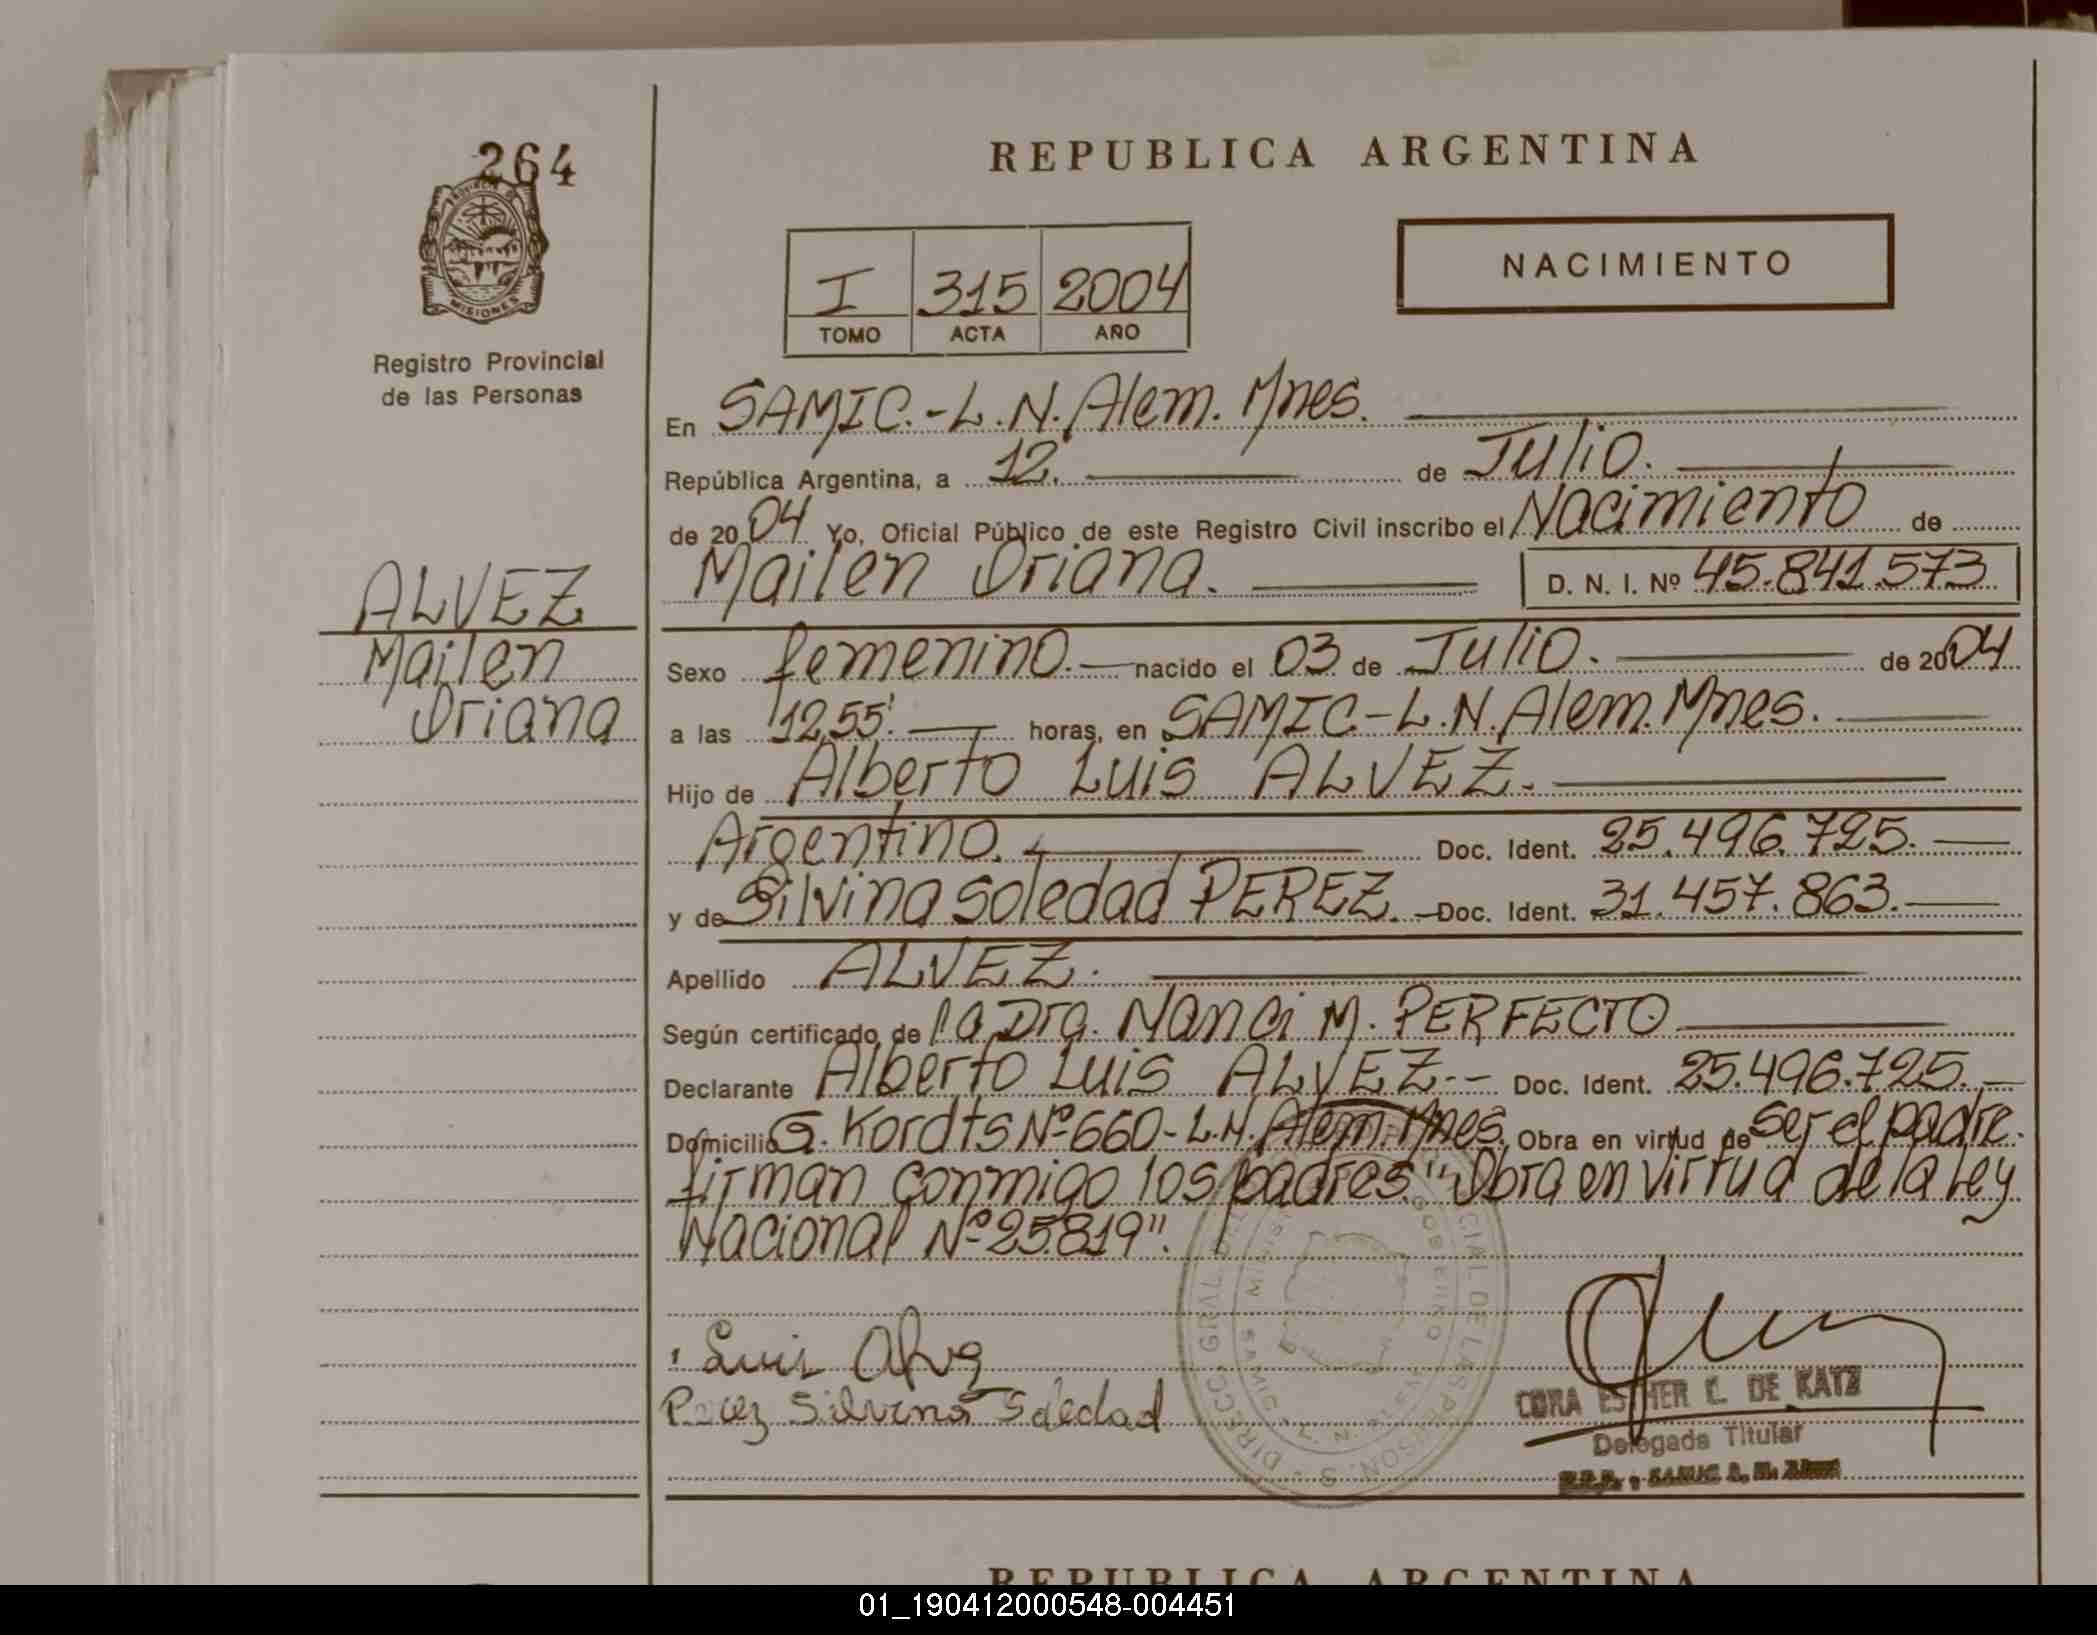 264
PROVINCIA DE
MISIONES
Registro Provincial
de las Personas
ALVEZ
Mailen
Oriana
REPUBLICA ARGENTINA
I 315 2004
TOMO ACTA AÑO
NACIMIENTO
En SAMIC.-L.N.Alem.Mnes.
República Argentina, a 12. de Julio.
de 2004 Yo, Oficial Público de este Registro Civil inscribo el Nacimiento de
Mailen Oriana. D. N. I. Nº 45.841.573
Sexo femenino. nacido el 03 de Julio. de 2004
a las 12,55'. horas, en SAMIC-L.N.Alem.Mnes.
Hijo de Alberto Luis ALVEZ.
Argentino. Doc. Ident. 25.496.725.
y de Silvina Soledad PEREZ. Doc. Ident. 31.457.863.
Apellido ALVEZ.
Según certificado de la Dra. Nanci M. PERFECTO
Declarante Alberto Luis ALVEZ.-- Doc. Ident. 25.496.725.
Domicilio G. Kordts Nº 660-L.N.Alem.Mnes. Obra en virtud de ser el padre.
firman conmigo los padres. "Obra en virtud de la Ley
Nacional Nº 25.819".
Luis Alvez
Perez Silvina Soledad
CORA ESTHER C. DE KATZ
Delegada Titular
REPUBLICA ARGENTINA
01_190412000548-004451